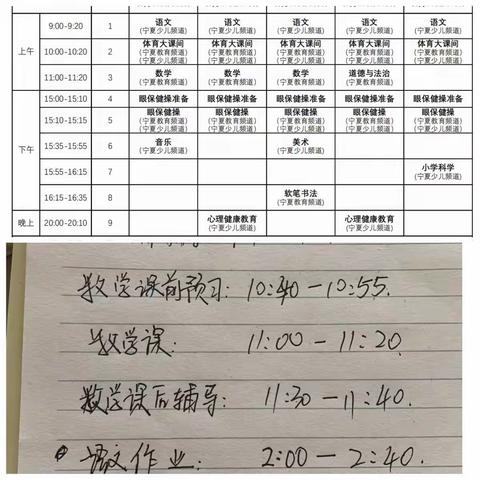 上午
9:00-9:20 1 语文 语文 语文 语文 语文
(宁夏少儿频道) (宁夏少儿频道) (宁夏少儿频道) (宁夏少儿频道) (宁夏少儿频道)
10:00-10:20 2 体育大课间 体育大课间 体育大课间 体育大课间 体育大课间
(宁夏教育频道) (宁夏教育频道) (宁夏教育频道) (宁夏教育频道) (宁夏教育频道)
11:00-11:20 3 数学 数学 数学 道德与法治
(宁夏教育频道) (宁夏教育频道) (宁夏教育频道) (宁夏少儿频道)
下午
15:00-15:10 4 眼保健操准备 眼保健操准备 眼保健操准备 眼保健操准备 眼保健操准备
15:10-15:15 5 眼保健操 眼保健操 眼保健操 眼保健操 眼保健操
(宁夏教育频道) (宁夏教育频道) (宁夏教育频道) (宁夏教育频道) (宁夏教育频道)
(宁夏少儿频道) (宁夏少儿频道) (宁夏少儿频道) (宁夏少儿频道) (宁夏少儿频道)
15:35-15:55 6 音乐 美术
(宁夏少儿频道) (宁夏少儿频道)
15:55-16:15 7 小学科学
(宁夏少儿频道)
16:15-16:35 8 软笔书法
(宁夏教育频道)
晚上 20:00-20:10 9 心理健康教育 心理健康教育
(宁夏少儿频道) (宁夏少儿频道)
数学课前预习: 10:40-10:55.
数学课: 11:00-11:20
数学课后辅导: 11:30-11:40.
语文作业: 2:00-2:40.